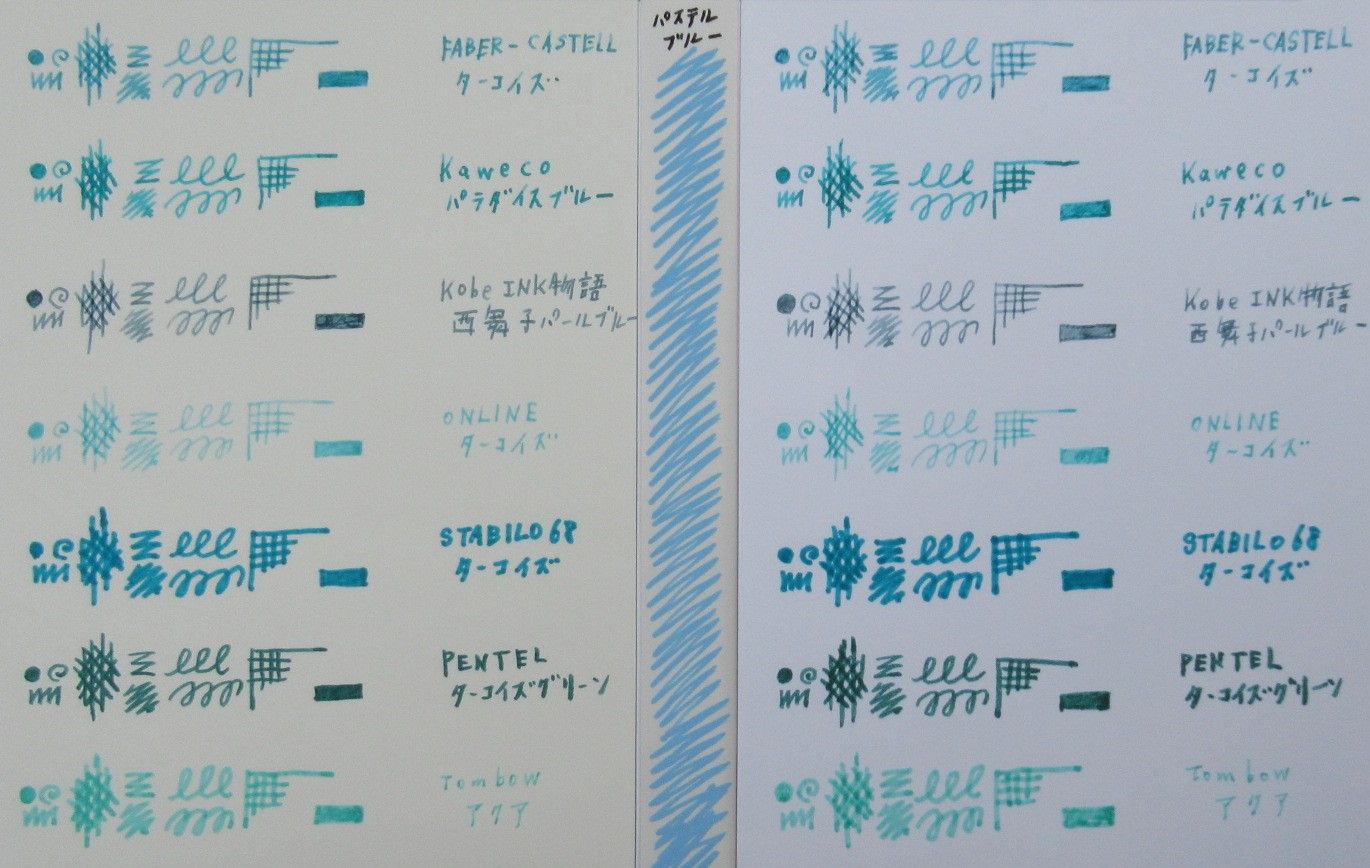 パステル
ブルー
FABER-CASTELL
ターコイズ
Kaweco
パラダイスブルー
Kobe INK物語
西舞子パールブルー
ONLINE
ターコイズ
STABILO 68
ターコイズ
PENTEL
ターコイズグリーン
Tombow
アクア
FABER-CASTELL
ターコイズ
Kaweco
パラダイスブルー
Kobe INK物語
西舞子パールブルー
ONLINE
ターコイズ
STABILO 68
ターコイズ
PENTEL
ターコイズグリーン
Tombow
アクア